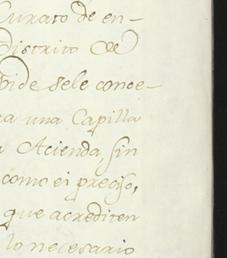 Curato de en-
Distrito de
Pide sele conce-
una Capilla
Acienda, sin
como ei preciso,
que acrediten
lo necesario